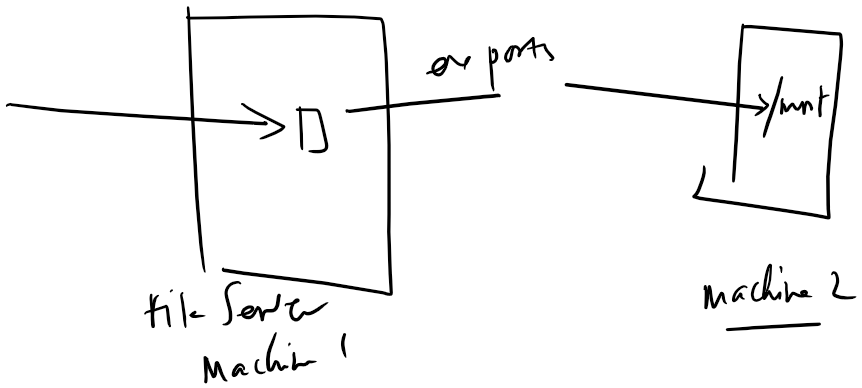 exports
D
/mnt
File Server
Machine 1
Machine 2